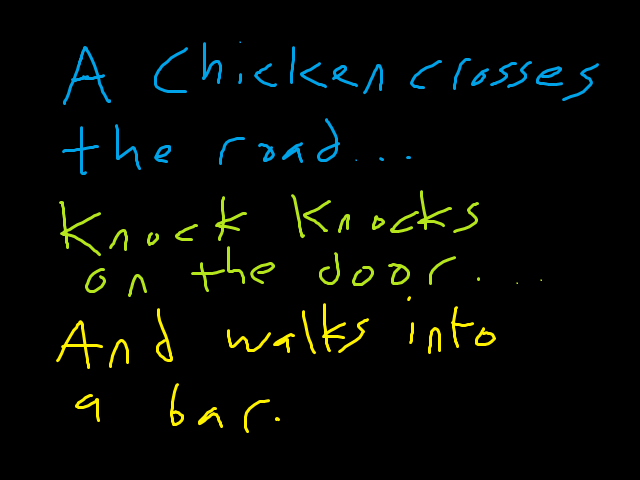 A Chicken crosses
the road...
Knock Knocks
on the door...
And walks into
a bar.